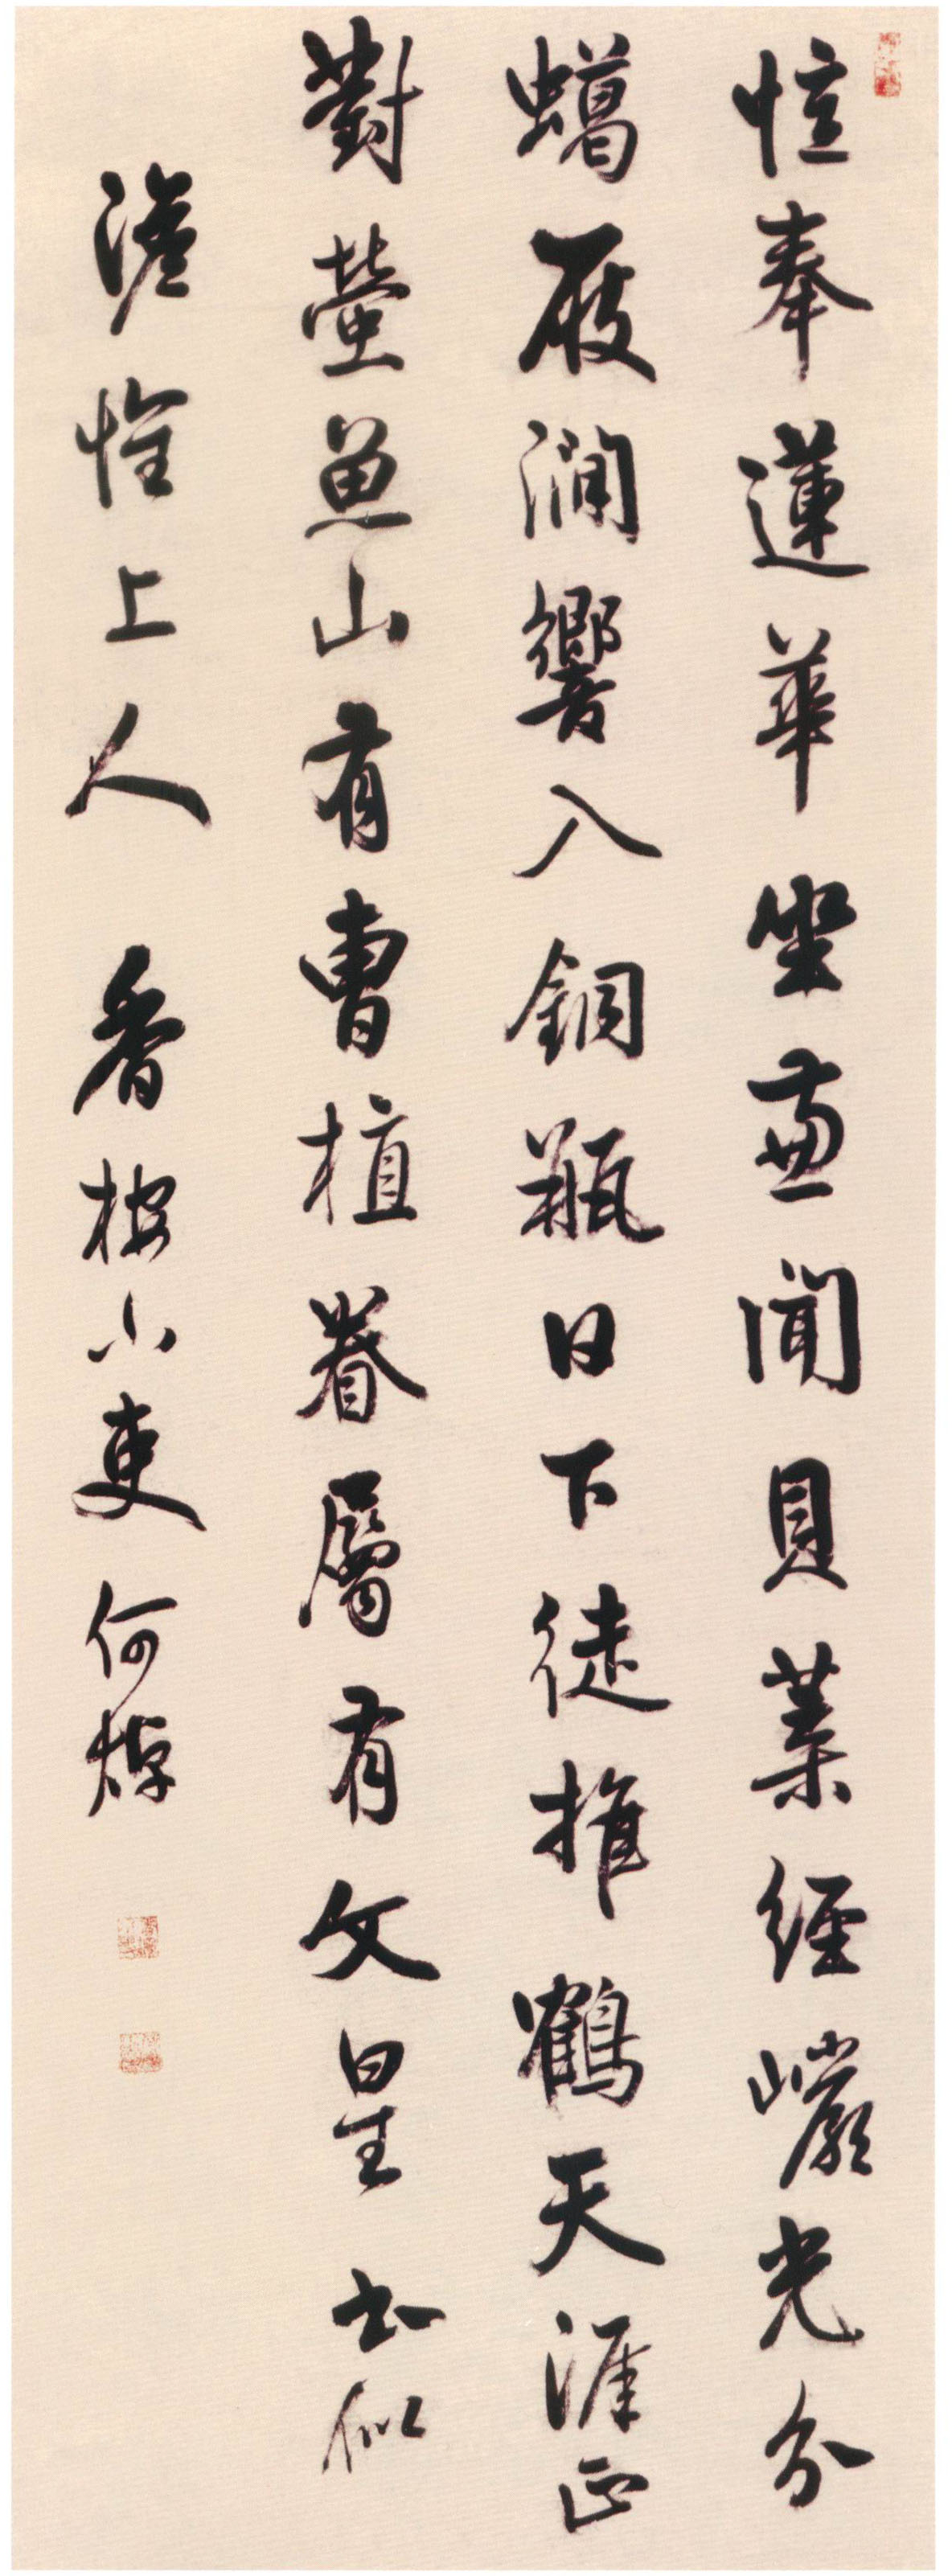 憶奉蓮華坐兼聞貝葉經巖光分
蠟屐澗響入銅瓶日下徒推鶴天涯正
對螢魚山有曹植眷屬有文星書似
澹恮上人 香桉小吏何焯